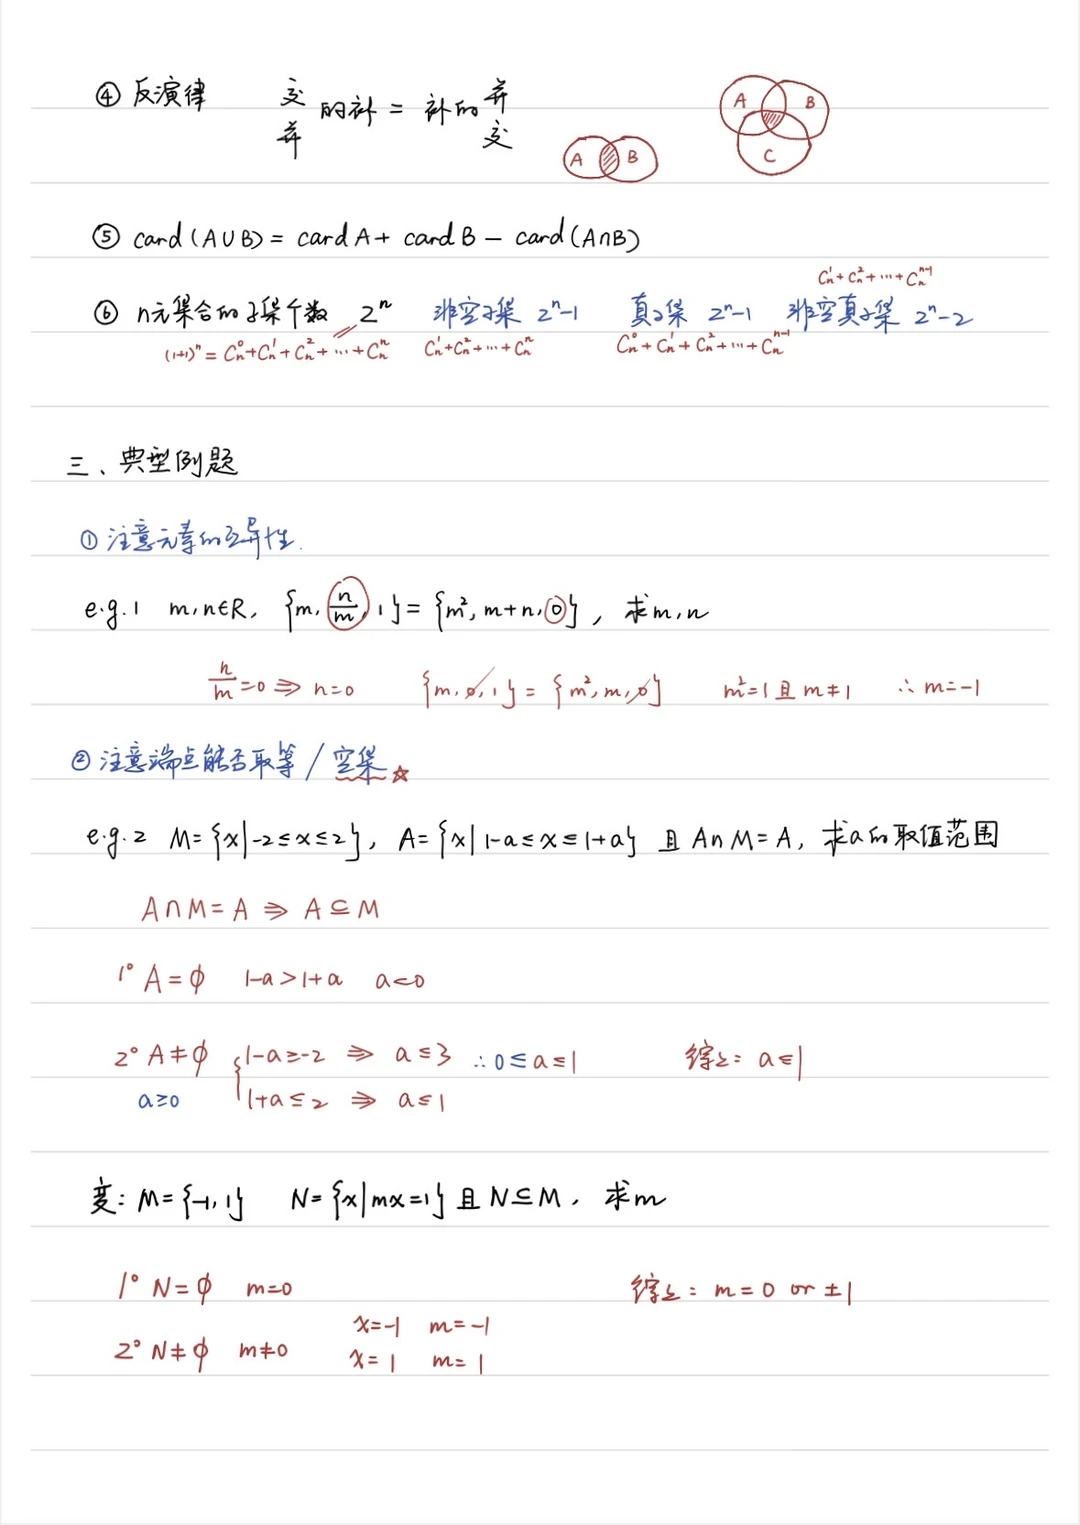 ④ 反演律 交/并 的补 = 补的 并/交
A B
A B C
⑤ card(A∪B) = card A + card B − card(A∩B)
Cₙ¹+Cₙ²+…+Cₙⁿ⁻¹
⑥ n元集合的子集个数 2ⁿ 非空子集 2ⁿ-1 真子集 2ⁿ-1 非空真子集 2ⁿ-2
(1+1)ⁿ = Cₙ⁰+Cₙ¹+Cₙ²+…+Cₙⁿ Cₙ¹+Cₙ²+…+Cₙⁿ Cₙ⁰+Cₙ¹+Cₙ²+…+Cₙⁿ⁻¹
三、典型例题
① 注意元素的互异性.
e.g.1 m,n∈R, {m, n/m, 1} = {m², m+n, 0}, 求m,n
n/m=0 ⇒ n=0 {m, 0, 1} = {m², m, 0} m²=1 且 m≠1 ∴ m=-1
② 注意端点能否取等 / 空集 ☆
e.g.2 M={x|-2≤x≤2}, A={x|1-a≤x≤1+a} 且 A∩M=A, 求a的取值范围
A∩M=A ⇒ A⊆M
1° A=∅ 1-a>1+a a<0
2° A≠∅ {1-a≥-2 ⇒ a≤3 ∴ 0≤a≤1 综上: a≤1
a≥0 1+a≤2 ⇒ a≤1
变: M={-1,1} N={x|mx=1} 且 N⊆M, 求m
1° N=∅ m=0 综上: m=0 or ±1
x=-1 m=-1
2° N≠∅ m≠0 x=1 m=1